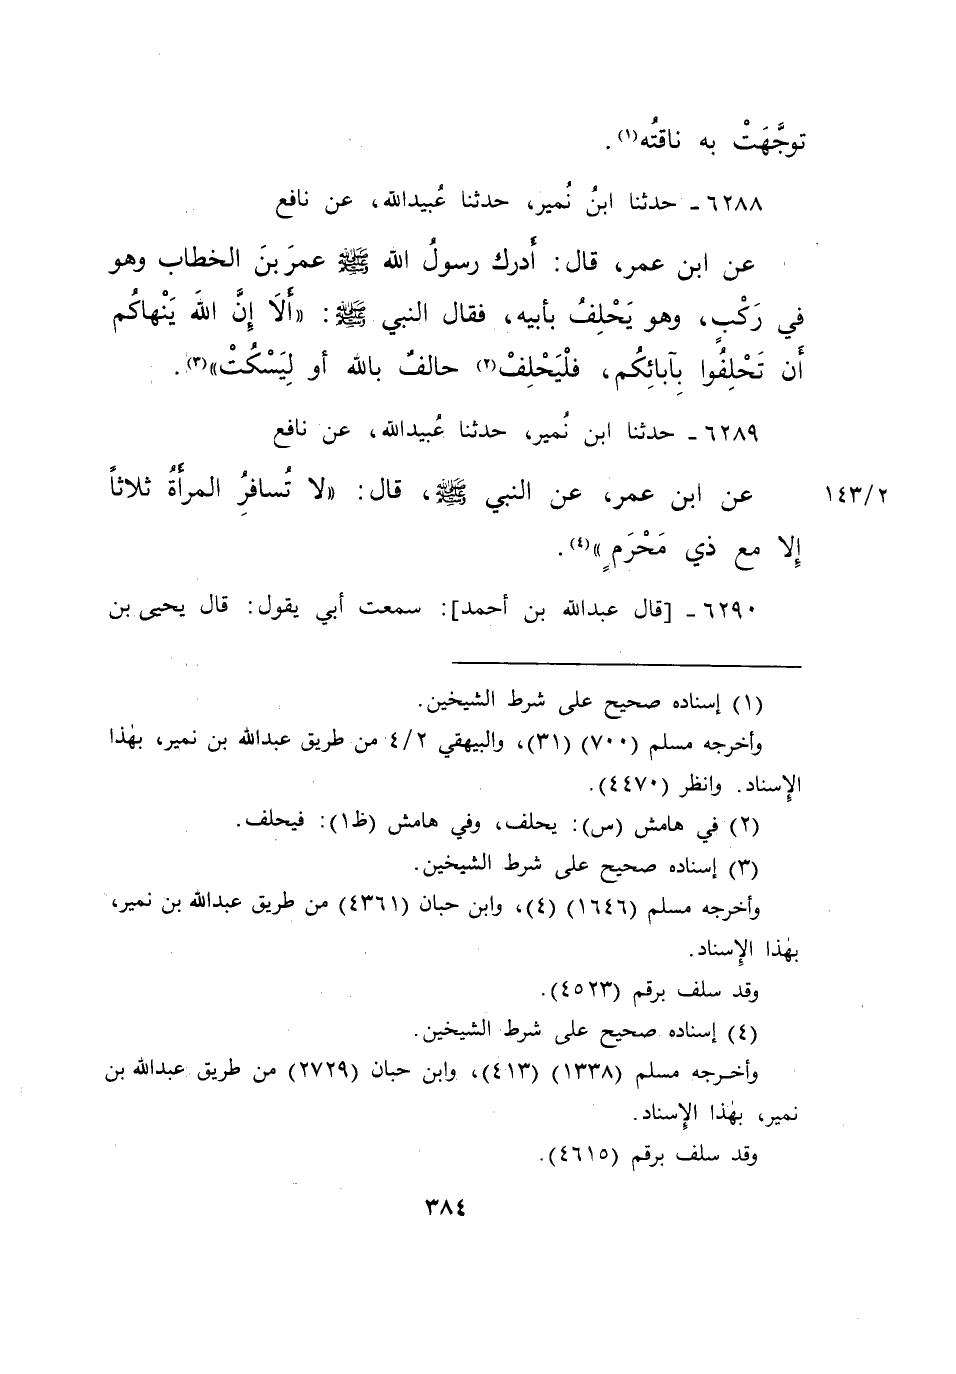 توجَّهَتْ به ناقتُه(١).
٦٢٨٨ـ حدثنا ابنُ نُمير، حدثنا عُبيدالله، عن نافع
عن ابن عمر، قال: أَدرك رسولُ الله ﷺ عمرَ بنَ الخطاب وهو
في رَكْبٍ، وهو يَحْلِفُ بأبيه، فقال النبي ﷺ: «أَلَا إِنَّ اللهَ يَنْهاكُم
أَن تَحْلِفُوا بِآبائِكُم، فلْيَحْلِفْ(٢) حالفٌ بالله أو لِيَسْكُتْ»(٣).
٦٢٨٩ـ حدثنا ابن نُمير، حدثنا عُبيدالله، عن نافع
١٤٣/٢ عن ابن عمر، عن النبي ﷺ، قال: «لا تُسافرُِ المرأَةُ ثلاثاً
إِلا مع ذي مَحْرَمٍ»(٤).
٦٢٩٠ـ [قال عبدالله بن أحمد]: سمعت أبي يقول: قال يحيى بن
(١) إسناده صحيح على شرط الشيخين.
وأخرجه مسلم (٧٠٠) (٣١)، والبيهقي ٤/٢ من طريق عبدالله بن نمير، بهٰذا
الإِسناد. وانظر (٤٤٧٠).
(٢) في هامش (س): يحلف، وفي هامش (ظ١): فيحلف.
(٣) إسناده صحيح على شرط الشيخين.
وأخرجه مسلم (١٦٤٦) (٤)، وابن حبان (٤٣٦١) من طريق عبدالله بن نمير،
بهٰذا الإِسناد.
وقد سلف برقم (٤٥٢٣).
(٤) إسناده صحيح على شرط الشيخين.
وأخرجه مسلم (١٣٣٨) (٤١٣)، وابن حبان (٢٧٢٩) من طريق عبدالله بن
نمير، بهٰذا الإِسناد.
وقد سلف برقم (٤٦١٥).
٣٨٤